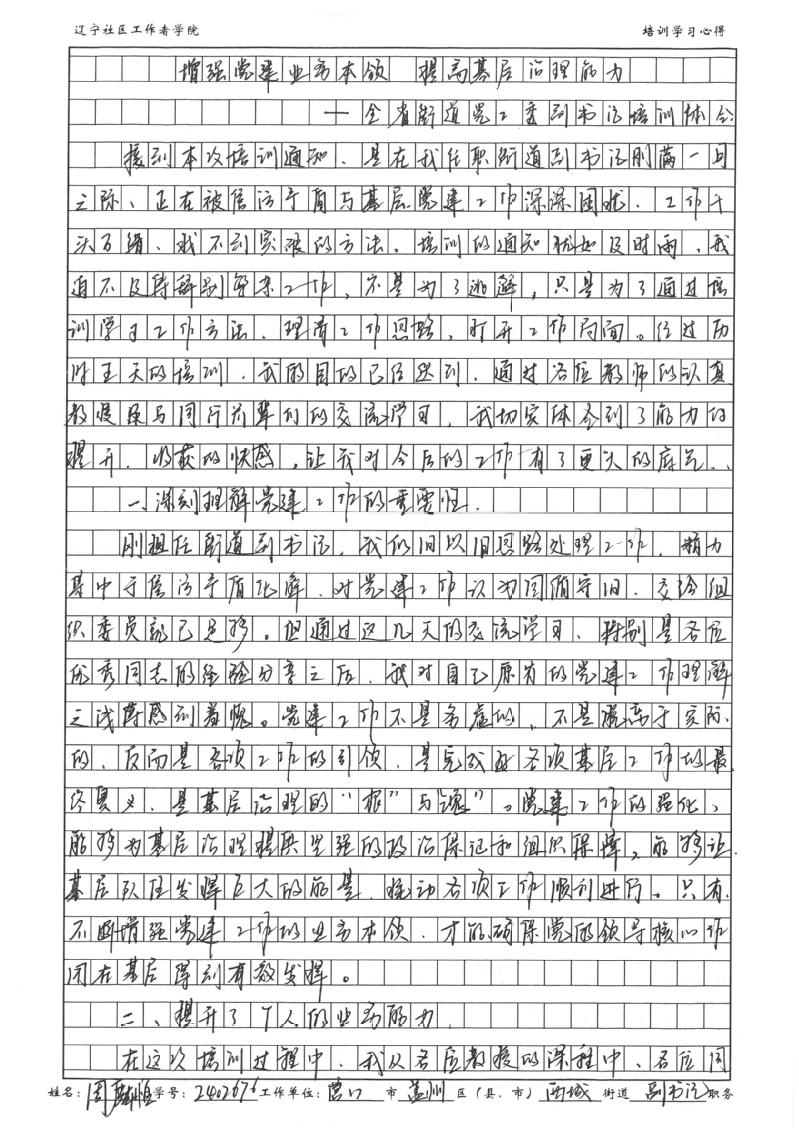 辽宁社区工作者学院 培训学习心得
增强党建业务本领 提高基层治理能力
——全省街道党工委副书记培训体会
接到本次培训通知、是在我任职街道副书记刚满一周
之际、正在被信访矛盾与基层党建工作深深困扰、工作千
头万绪、找不到突破的方法。培训的通知犹如及时雨、我
迫不及待辞别繁杂工作，不是为了逃避，只是为了通过培
训学习工作方法、理清工作思路，打开工作局面。经过历
时五天的培训、我的目的已经达到、通过各位教师的认真
教授及与同行前辈们的交流学习，我切实体会到了能力的
提升、收获的快感，让我对今后的工作有了更大的底气。
一、深刻理解党建工作的重要性.
刚担任街道副书记，我仍旧以旧思路处理工作，精力
集中于信访矛盾化解、对党建工作认为因循守旧、交给组
织委员就已足够。但通过这几天的交流学习、特别是各位
优秀同志的经验分享之后，我对自己原有的党建工作理解
之浅薄感到羞愧。党建工作不是务虚的，不是脱离于实际
的、反而是各项工作的引领、是完成好各项基层工作的最
终奥义、是基层治理的“根”与“魂”。党建工作的强化、
能够为基层治理提供坚强的政治保证和组织保障，能够让
基层队伍发挥巨大的能量，推动各项工作顺利进行。只有
不断增强党建工作的业务本领，才能确保党的领导核心作
用在基层得到有效发挥。
二、提升了个人的业务能力.
在这次培训过程中、我从各位教授的课程中、各位同
姓名：周 学号：2402676 工作单位：营口 市 盖州 区（县、市） 西城 街道 副书记 职务